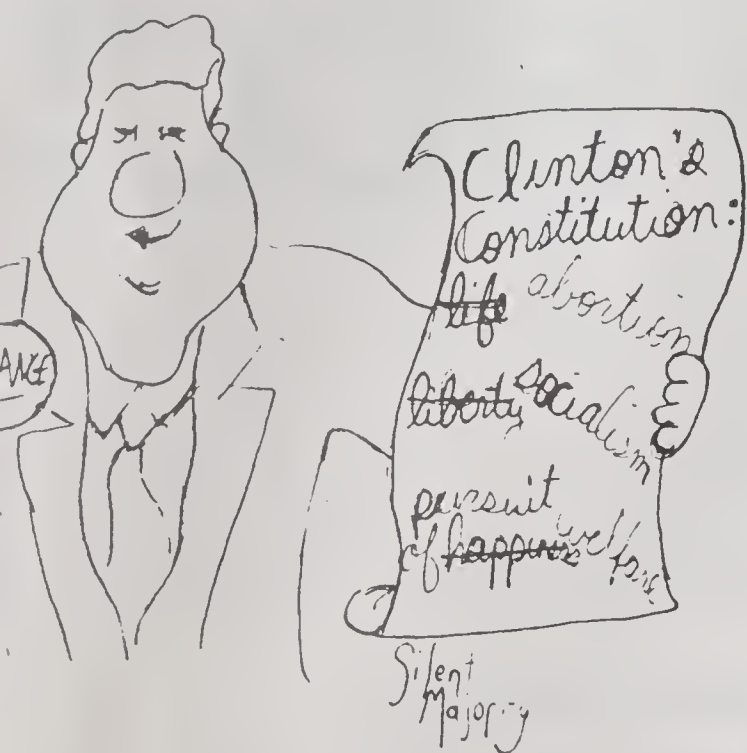 ANGE
Clinton's
Constitution:
life abortion
liberty socialism
pursuit
of happiness welfare
Silent
Majority